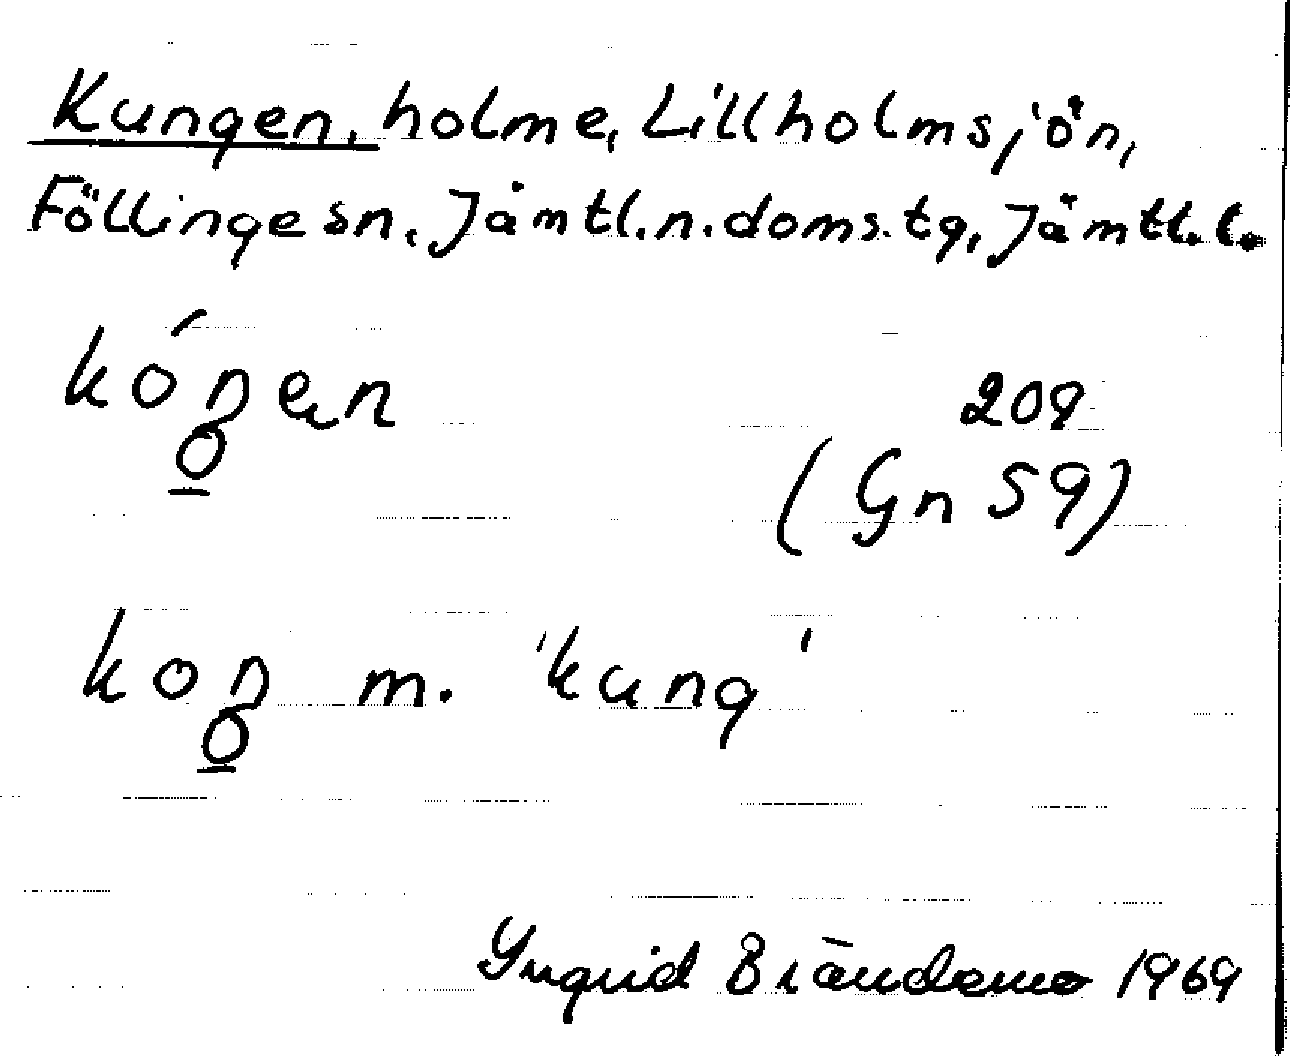 Kungen, holme, Lillholmsjön,
Föllinge sn, Jämtl.n.doms.tg, Jämtl.l.
kóŋen
209
(Gn 59)
koŋ m. 'kung'
Yngrid Brändemo 1969